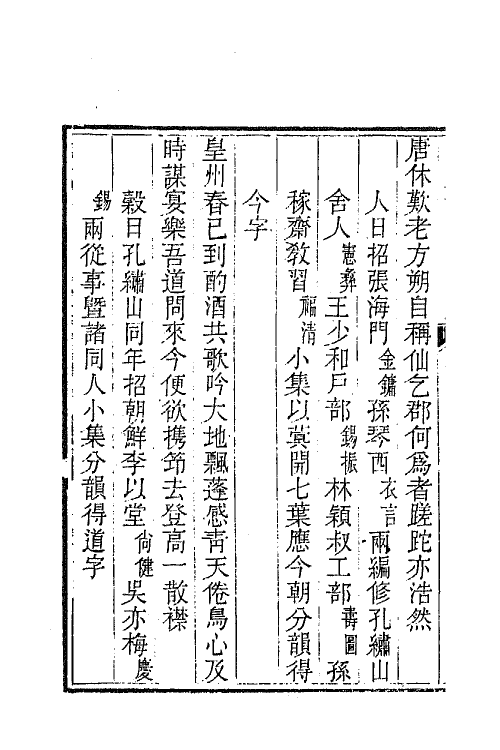 唐休歎老方朔自稱仙乞郡何爲者蹉跎亦浩然
人日招張海門金鏞孫琴西衣言兩編修孔繡山
舍人憲彝王少和戶部錫振林穎叔工部壽圖孫
稼齋敎習福清小集以蓂開七葉應今朝分韻得
今字
皇州春已到酌酒共歌吟大地飄蓬感靑天倦鳥心及
時謀宴樂吾道問來今便欲携筇去登高一散襟
穀日孔繡山同年招朝鮮李以堂尙健吳亦梅慶
錫兩從事曁諸同人小集分韻得道字